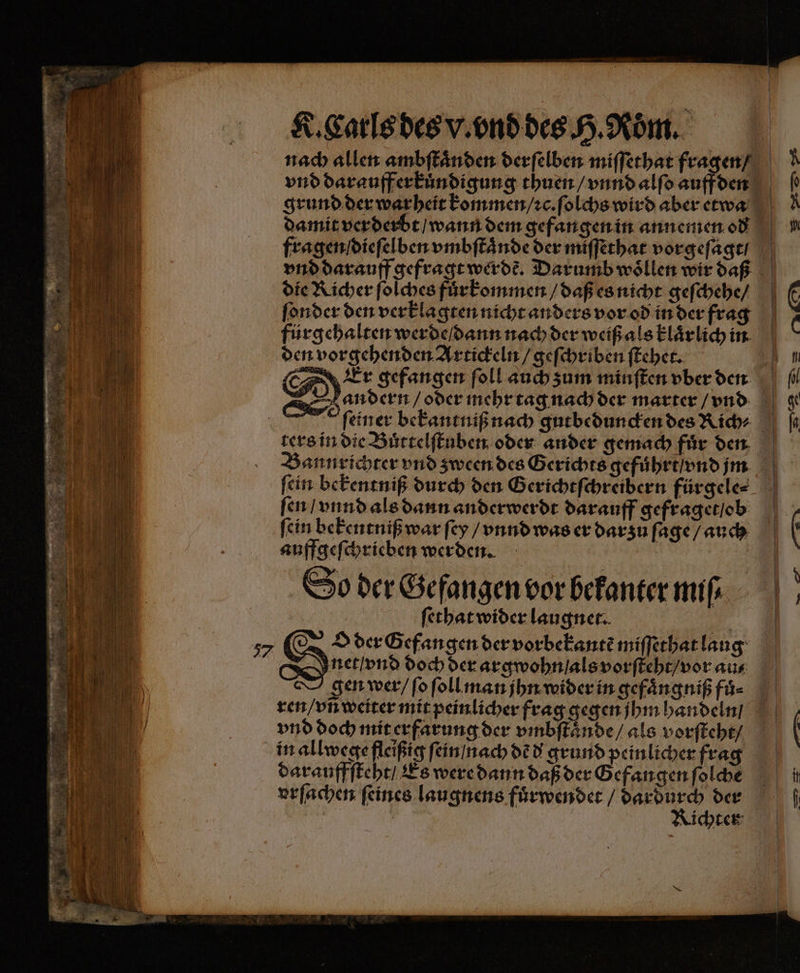 K. Carls des v. vnd des H. Roͤm.
nach allen ambſtaͤnden derſelben miſſethat fragen/
vnd darauff erkuͤndigung thuen / vnnd alſo auff den
grund der warheit kommen/ꝛc. ſolchs wird aber etwa
damit verderbt / wann dem gefangen in annemen od
fragen/dieſelben vmbſtaͤnde der miſſethat vorgeſagt/
vnd darauff gefragt werdẽ. Darumb woͤllen wir daß
die Richer ſolches fuͤrkommen / daß es nicht geſchehe/
ſonder den verklagten nicht anders vor od in der frag
fuͤrgehalten werde/dann nach der weiß als klaͤrlich in
den vorgehenden Artickeln / geſchriben ſtehet.
DEr gefangen ſoll auch zum minſten vber den
andern / oder mehr tag nach der marter / vnd
ſeiner bekantniß nach gutbeduncken des Rich⸗
ters in die Buͤttelſtuben oder ander gemach fuͤr den
Bannrichter vnd zween des Gerichts gefuͤhrt/vnd jm
ſein bekentniß durch den Gerichtſchreibern fuͤrgele⸗
ſen / vnnd als dann anderwerdt darauff gefraget/ob
ſein bekentniß war ſey / vnnd was er darzu ſage / auch
auffgeſchrieben werden.
So der Gefangen vor bekanter miſ⸗
ſethat wider laugnet.
57 SO der Gefangen der vorbekantẽ miſſethat laug
net/vnd doch der argwohn/als vorſteht/vor au⸗
gen wer/ ſo ſoll man jhn wider in gefaͤngniß fuͤ⸗
ren/vñ weiter mit peinlicher frag gegen jhm handeln/
vnd doch mit erfarung der vmbſtaͤnde / als vorſteht/
in allwege fleißig ſein/nach dẽ d grund peinlicher frag
darauff ſteht/ Es were dann daß der Gefangen ſolche
vrſachen ſeines laugnens fuͤrwendet / dardurch der
Richter